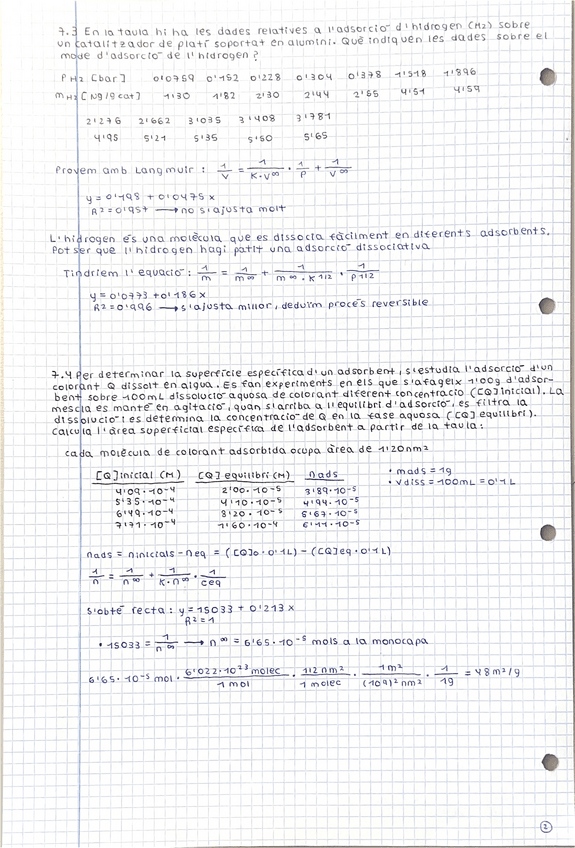 7.3 En la taula hi ha les dades relatives a l'adsorció d'hidrogen (H₂) sobre
un catalitzador de platí soportat en alumini. Què indiquen les dades sobre el
mode d'adsorció de l'hidrogen?
P H₂ [bar] 0'0759 0'152 0'228 0'304 0'378 1'518 1'896
m H₂ [Ng/gcat] 1'30 1'82 2'30 2'44 2'65 4'51 4'59
2'276 2'662 3'035 3'408 3'781
4'95 5'21 5'35 5'50 5'65
Provem amb Langmuir: 1/V = 1/(K·V∞) · 1/P + 1/V∞
y = 0'198 + 0'0475x
R² = 0'957 → no s'ajusta molt
L'hidrogen és una molècula que es dissocia fàcilment en diferents adsorbents.
Pot ser que l'hidrogen hagi patit una adsorció dissociativa
Tindríem l'equació: 1/m = 1/m∞ + 1/(m∞·K^1/2) · 1/P^1/2
y = 0'0773 + 0'186x
R² = 0'996 → s'ajusta millor, deduïm procés reversible
7.4 Per determinar la superfície específica d'un adsorbent, s'estudia l'adsorció d'un
colorant Q dissolt en aigua. Es fan experiments en els que s'afageix 1'00g d'adsor-
bent sobre 100mL dissolució aquosa de colorant diferent concentració ([Q]inicial). La
mescla es manté en agitació, quan s'arriba a l'equilibri d'adsorció, es filtra la
dissolució i es determina la concentració de Q en la fase aquosa ([Q] equilibri).
Calcula l'àrea superficial específica de l'adsorbent a partir de la taula:
cada molècula de colorant adsorbida ocupa àrea de 1'20nm²
[Q]inicial (M) [Q] equilibri (M) nads • mads = 1g
4'09·10⁻⁴ 2'00·10⁻⁵ 3'89·10⁻⁵ • Vdiss = 100mL = 0'1L
5'35·10⁻⁴ 4'10·10⁻⁵ 4'94·10⁻⁵
6'49·10⁻⁴ 8'20·10⁻⁵ 5'67·10⁻⁵
7'71·10⁻⁴ 1'60·10⁻⁴ 6'11·10⁻⁵
nads = ninicials - neq = ([Q]₀·0'1L) - ([Q]eq·0'1L)
1/n = 1/n∞ + 1/(K·n∞) · 1/ceq
S'obté recta: y = 15033 + 0'213x
R² = 1
• 15033 = 1/n∞ → n∞ = 6'65·10⁻⁵ mols a la monocapa
6'65·10⁻⁵ mol · 6'022·10²³ molec/1 mol · 1'2 nm²/1 molec · 1m²/(10⁹)² nm² · 1/1g = 48m²/g
2